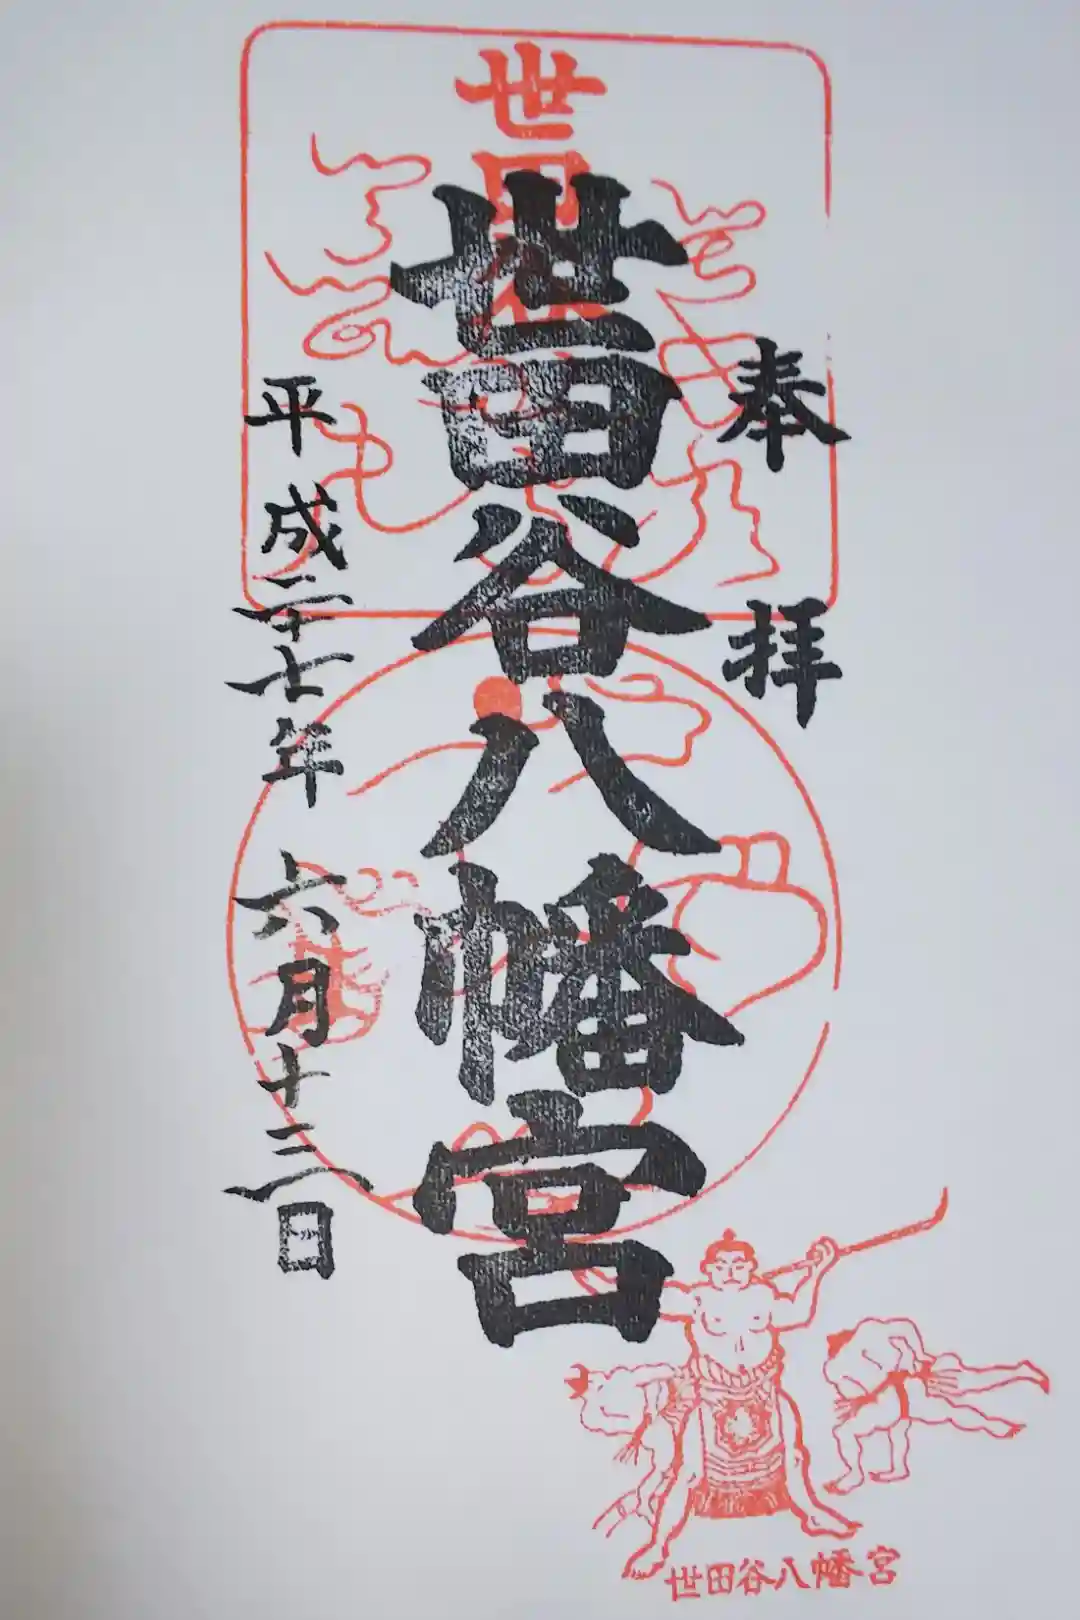 奉拝
世田谷
世田谷八幡宮
平成二十七年 六月十三日
世田谷八幡宮